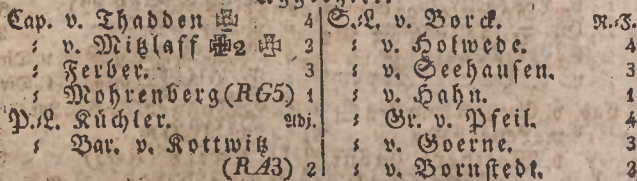 Cap. v. Thadden 4
: v. Mitzlaff 2 2
: Ferber. 3
: Mohrenberg (RG5) 1
P.:L. Küchler. Adj.
: Bar. v. Kottwitz
(RA3) 2
S.:L. v. Borck. R.:J.
: v. Holwede. 4
: v. Seehausen. 3
: v. Hahn. 1
: Gr. v. Pfeil. 4
: v. Goerne. 3
: v. Bornstedt. 2